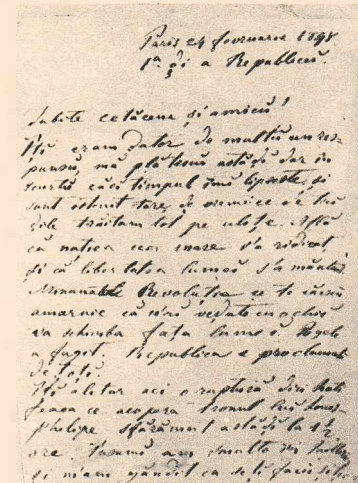 Paris 24 fevruarie 1848
1a di a Republicei.
Iubite cetăţene, şi amicu!
Iţi eram dator de multu un res-
punsu, mă plătescu astă-di dar în
scurtu căci timpul îmi lipseşte, şi
sunt ostenit tare, de vreme ce trei
zile trăitam tot pe uliţe. Află
că naţia cea mare s'a ridicat
şi că libertatea lumei s'a mântuit.
Minunată Revoluţie ce te căiesci
amarnic că n'ai vedut cu ochii
va schimba faţa lumei. Regele
a fugit. Republica e proclamat
de toţi.
Iţi alătur aci o ruptură din
ce acopera tronul lui Louis-
philipe sfărămat astă-di la 1 1/2
ore. Însumi am smulto din
şi m'am gândit ca să-ţi facu